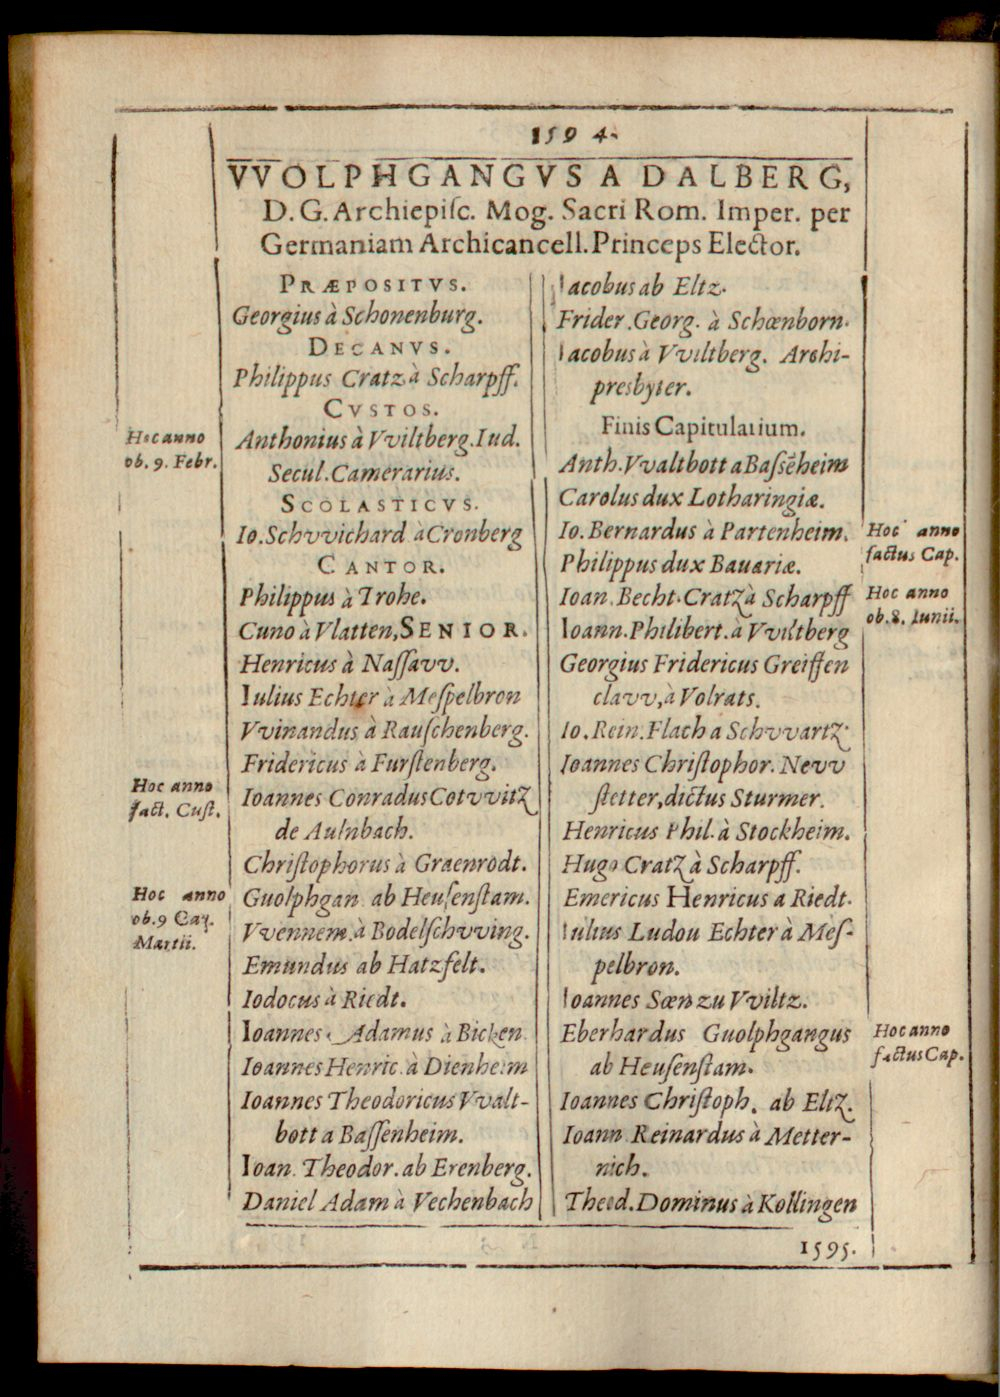 1594.
VVOLPHGANGVS A DALBERG,
D. G. Archiepiſc. Mog. Sacri Rom. Imper. per
Germaniam Archicancell. Princeps Elector.
PRÆPOSITVS.
Georgius à Schonenburg.
DECANVS.
Philippus Cratz à Scharpff.
CVSTOS.
Hoc anno
ob. 9. Febr.
Anthonius à Vviltberg. Iud.
Secul. Camerarius.
SCOLASTICVS.
Io. Schvvichard à Cronberg
CANTOR.
Philippus à Trohe.
Cuno à Vlatten, SENIOR.
Henricus à Naſſavv.
Iulius Echter à Meſpelbron
Vvinandus à Rauſchenberg.
Fridericus à Furſtenberg.
Hoc anno
fact. Cuſt.
Ioannes Conradus Cotvvitz
de Aulnbach.
Chriſtophorus à Graenrodt.
Hoc anno
ob. 9
Martii.
Guolphgan. ab Heuſenſtam.
Vvennem. à Bodelſchvving.
Emundus ab Hatzfelt.
Iodocus à Riedt.
Ioannes Adamus à Bicken
Ioannes Henric. à Dienheim
Ioannes Theodoricus Vvalt-
bott a Baſſenheim.
Ioan. Theodor. ab Erenberg.
Daniel Adam à Vechenbach
Iacobus ab Eltz.
Frider. Georg. à Schœnborn.
Iacobus à Vviltberg. Archi-
presbyter.
Finis Capitularium.
Anth. Vvaltbott a Baſsēheim
Carolus dux Lotharingiæ.
Io. Bernardus à Partenheim.
Hoc anno
factus Cap.
Philippus dux Bauariæ.
Ioan. Becht. Cratz à Scharpff
Hoc anno
ob. 8. Iunii.
Ioann. Philibert. à Vviltberg
Georgius Fridericus Greiffen
clavv, à Volrats.
Io. Rein. Flach a Schvvartz.
Ioannes Chriſtophor. Nevv
ſtetter, dictus Sturmer.
Henricus Phil. à Stockheim.
Hugo Cratz à Scharpff.
Emericus Henricus a Riedt.
Iulius Ludou Echter à Meſ-
pelbron.
Ioannes Sœn zu Vviltz.
Eberhardus Guolphgangus
Hoc anno
factus Cap.
ab Heuſenſtam.
Ioannes Chriſtoph. ab Eltz.
Ioann. Reinardus à Metter-
nich.
Theod. Dominus à Kollingen
1595.